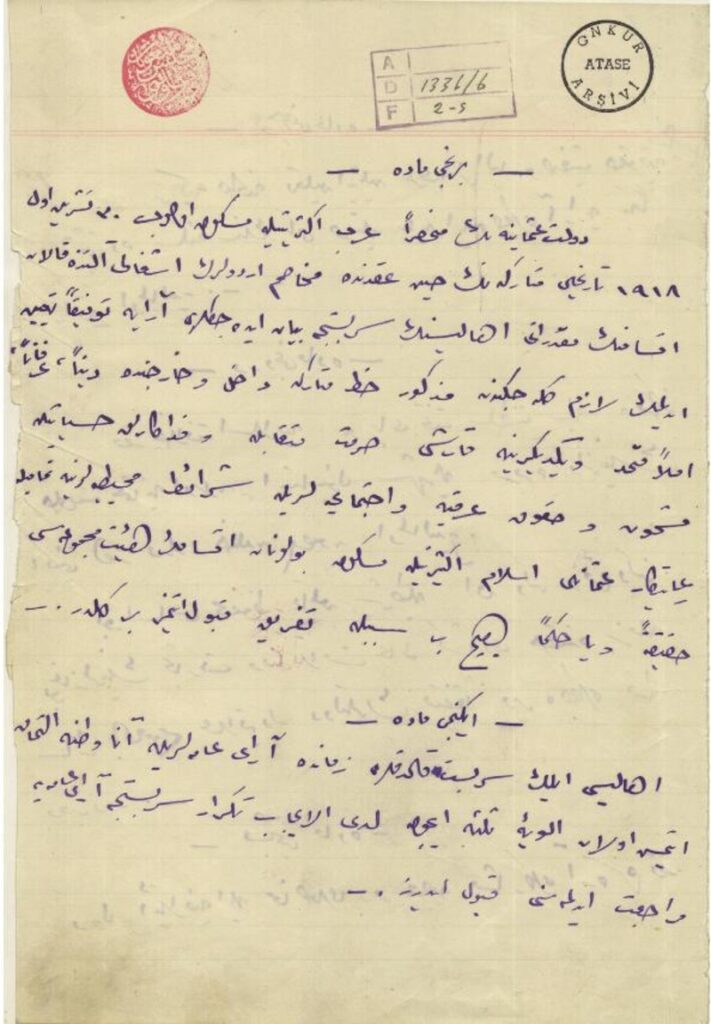 GNKUR
ATASE
ARŞİVİ
A
D 1336/6
F 2-5
— برنجی ماده —
دولت عثمانیه نك منحصراً عرب اكثریتیله مسكون اولوب ٣٠ تشرین اول
١٩١٨ تاریخلی متاركه نك حین عقدنده مخاصم اردولرك اشغالی آلتنده قالان
اقسامنك مقدراتی اهالیسنك سربستجه بیان ایده جكلری آرایه توفیقاً تعیین
ایدلمك لازم كله جكندن مذكور خط متاركه داخل و خارجنده دیناً، عرفاً،
املاً متحد و یكدیگرینه قارشی حرمت متقابله و فداكارلق حسیاتیله
مشحون و حقوق عرقیه و اجتماعیه لریله شرائط محیطیه لرینه تمامیله
رعایتكار عثمانلی اسلام اكثریتیله مسكون بولونان اقسامك هیئت مجموعه سی
حقیقةً ویا حكماً هیچ بر سببله تفریق قبول ایتمز بر كلدر . —
— ایكنجی ماده —
اهالیسی ایلك سربست قالدقلری زمانده آرای عامه لریله آنا وطنه التحاق
ایتمش اولان الویهٔ ثلثه ایچون لدی الایجاب تكرار سربستجه آرای عامه یه
مراجعت ایدلمه سنی قبول ایدرز . —